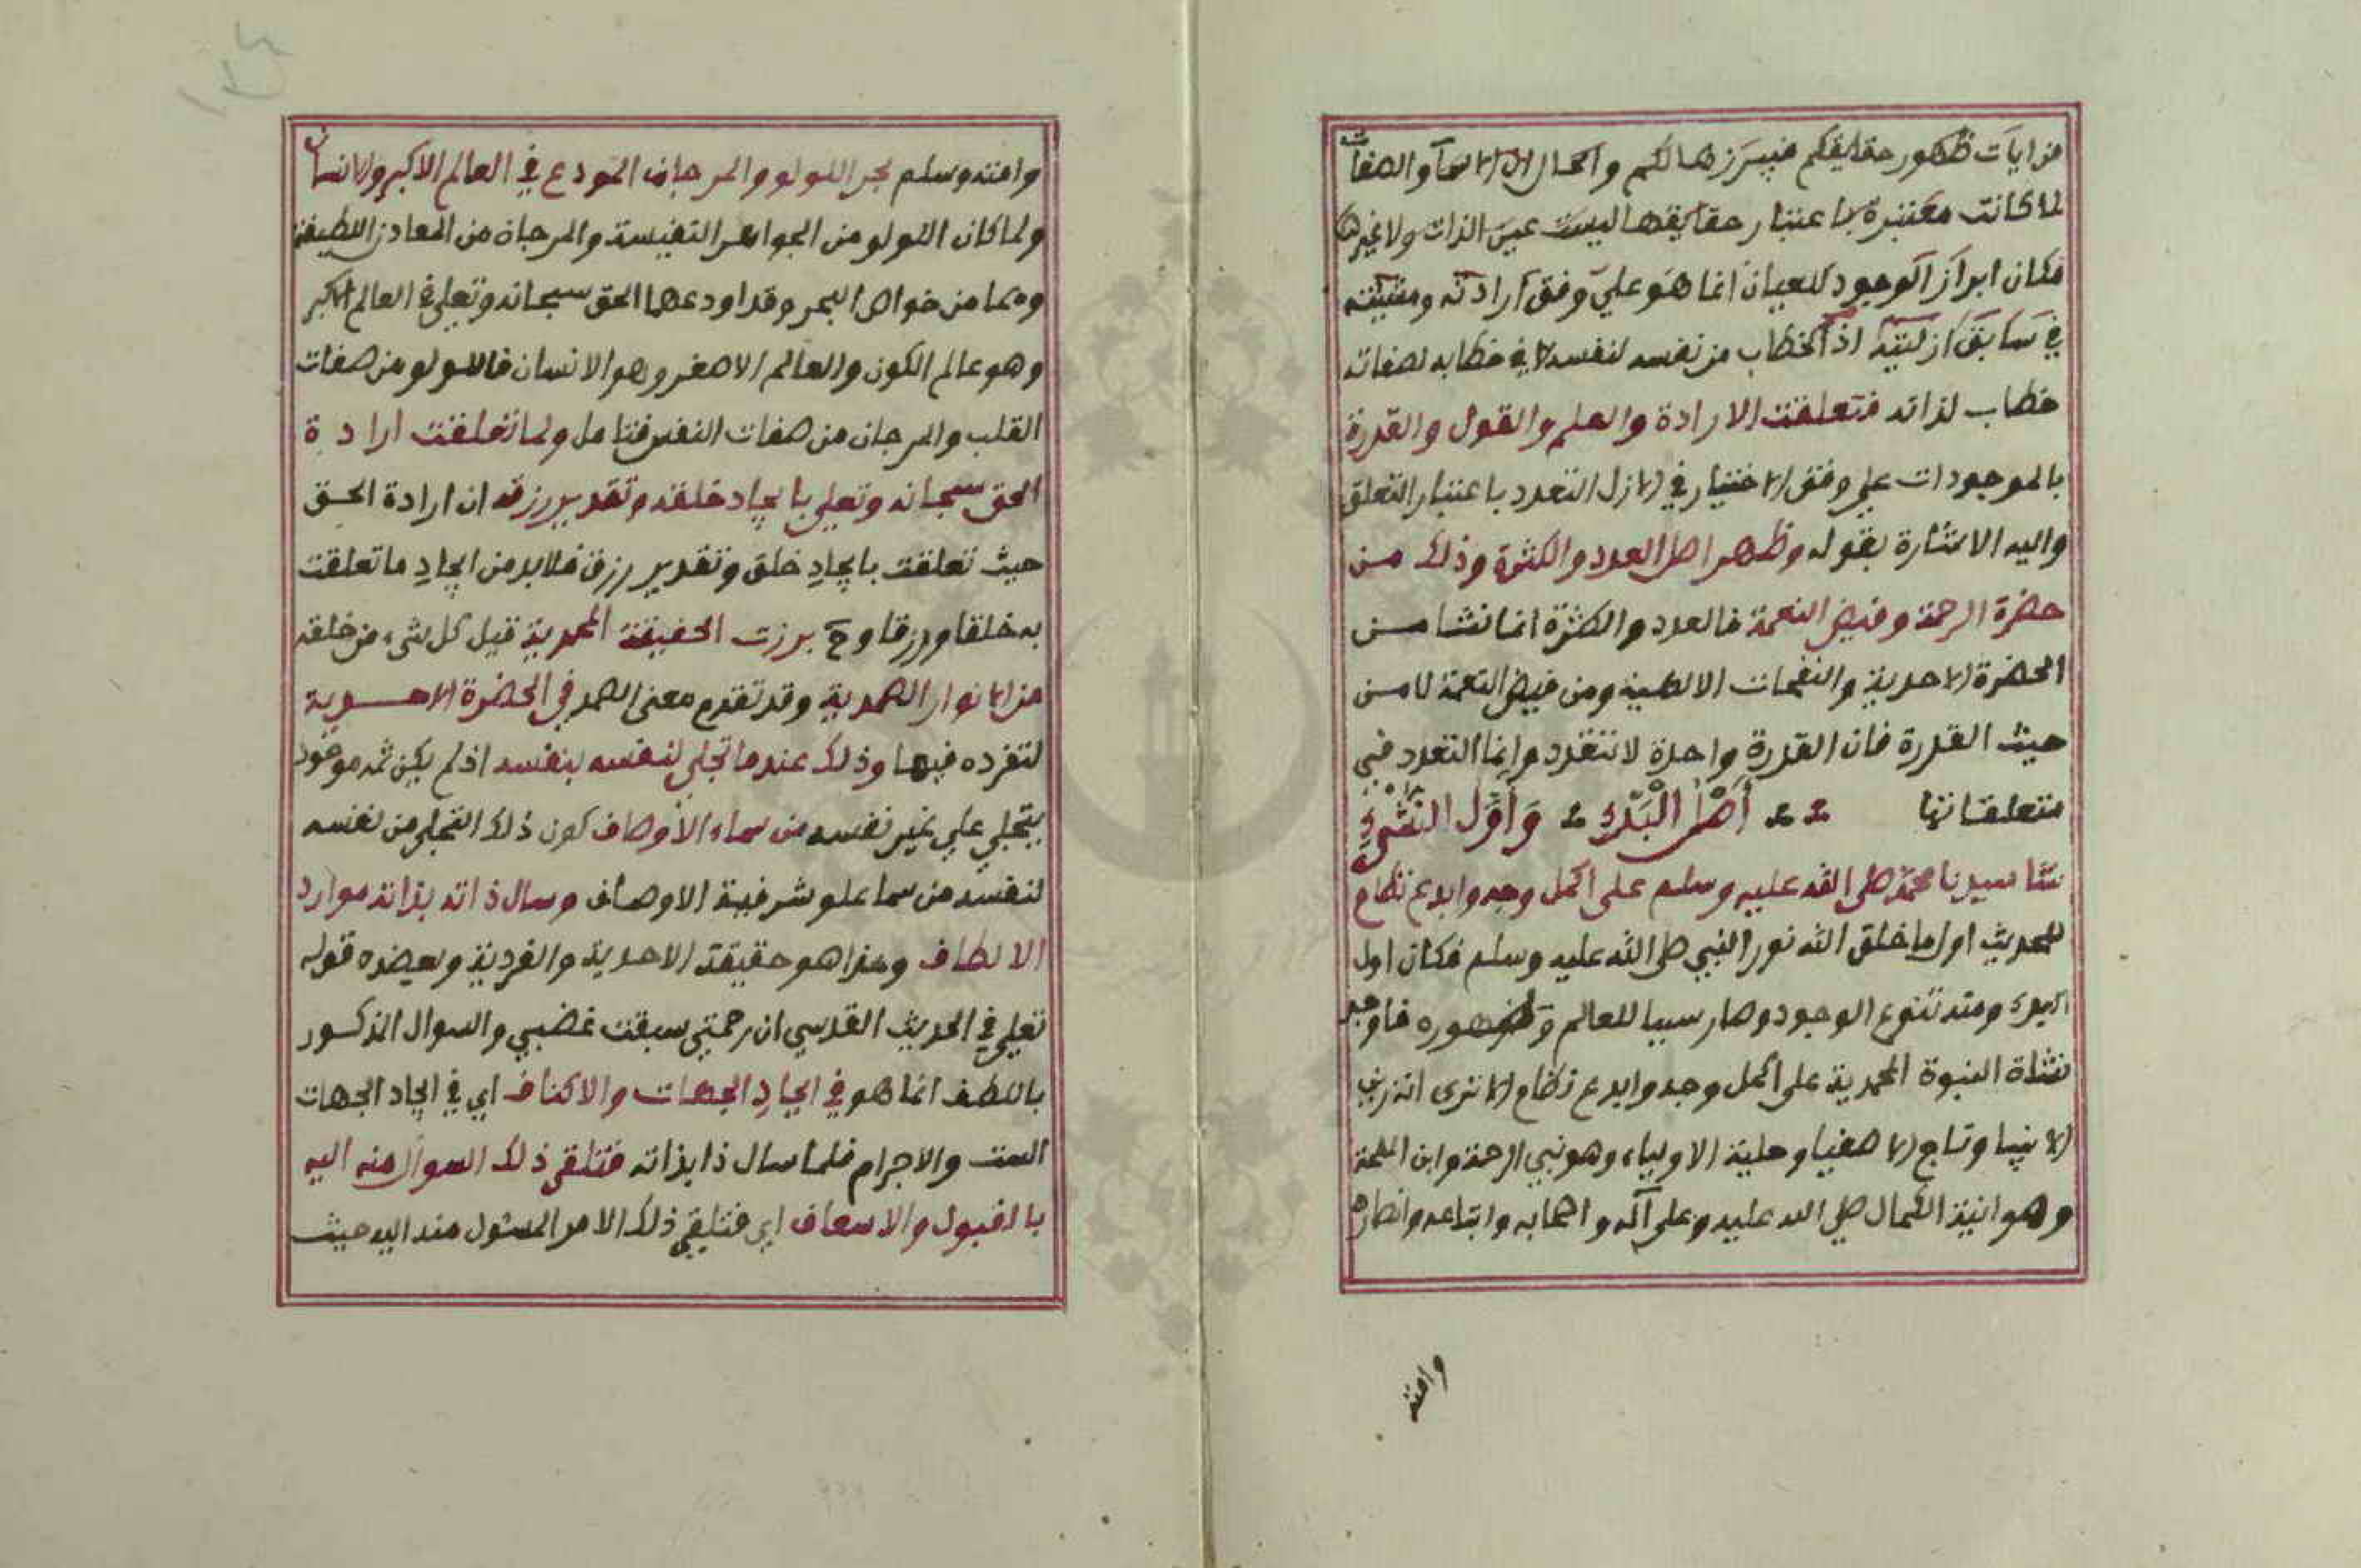 من ايات ظهور حقايقكم فيبرزها لكم والحال ان الاسمآ والصفات
لما كانت معتبرة باعتبار حقايقها ليست عين الذات ولا غيرها
فكان ابراز الوجود للعيان انما هو علي وفق ارادته ومشيئته
في سابق ازليته اذ الخطاب من نفسه لنفسه لا في خطابه لصفاته
خطاب لذاته فتعلقت الارادة والعلم والقول والقدرة
بالموجودات علي وفق الاختيار في الازل التعدد باعتبار التعلق
واليه الاشارة بقوله وظهر اصل العدد والكثرة وذلك من
حضرة الرحمة وفيض النعمة فالعدد والكثرة انما نشا من
الحضرة الاحدية والنفحات الالهية ومن فيض النعمة لا من
حيث القدرة فان القدرة واحدة لا تتعدد وانما التعدد في
متعلقاتها اصل البدء واول النشئ
نشا سيدنا محمد صلى الله عليه وسلم على اكمل وجه وابدع نظام
للحديث اول ما خلق الله نور النبي صلى الله عليه وسلم فكان اول
البدء ومنه تنوع الوجود وصار سببا للعالم وظهوره فاوجد
نشاة النبوة المحمدية على اكمل وجه وابدع نظام الا ترى انه زين
الانبيا وتاج الاصفيا وحلية الاولياء وهو نبي الرحمة وابن الملحمة
وهو انية الكمال صلي الله عليه وعلى آله واصحابه واتباعه وانصاره
وامته
وامته وسلم بحر اللولو والمرجان المودع في العالم الاكبر والانسان
ولما كان اللولو من الجواهر النفيسة والمرجان من المعادن اللطيفة
وهما من خواص البحر وقد اودعهما الحق سبحانه وتعلي في العالم الاكبر
وهو عالم الكون والعالم الاصغر وهو الانسان فاللولو من صفات
القلب والمرجان من صفات النفس فتامل ولما تعلقت ارادة
الحق سبحانه وتعلي بايجاد خلقه وتقدير رزقه ان ارادة الحق
حيث تعلقت بايجاد خلق وتقدير رزق فلا بد من ايجاد ما تعلقت
به خلقا ورزقا وح برزت الحقيقة المحمدية قبل كل شيء من خلقه
من الانوار الصمدية وقد تقدم معنى الصمد في الحضرة الاحدية
لتفرده فيها وذلك عندما تجلي لنفسه بنفسه اذ لم يكن ثمه موجود
يتجلي علي غير نفسه من سماء الاوصاف كون ذلك التجلي من نفسه
لنفسه من سما علو شرفية الاوصاف وسال ذاته بذاته موارد
الالطاف وهذا هو حقيقة الاحدية والفردية ويعضده قوله
تعلي في الحديث القدسي ان رحمتي سبقت غضبي والسوال المذكور
باللطف انما هو في ايجاد الجهات والاكناف اي في ايجاد الجهات
الست والاجرام فلما سال ذا بذاته فتلقى ذلك السوال منه اليه
بالقبول والاسعاف اي فتلقي ذلك الامر المسئول منه اليه حيث